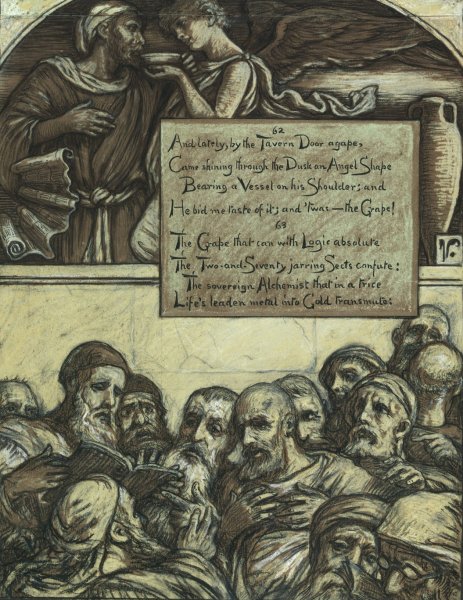 62
And lately, by the Tavern Door agape,
Came shining through the Dusk an Angel Shape
Bearing a Vessel on his Shoulder; and
He bid me taste of it; and 'twas—the Grape!
63
The Grape that can with Logic absolute
The Two-and-Seventy jarring Sects confute:
The sovereign Alchemist that in a trice
Life's leaden metal into Gold transmute: